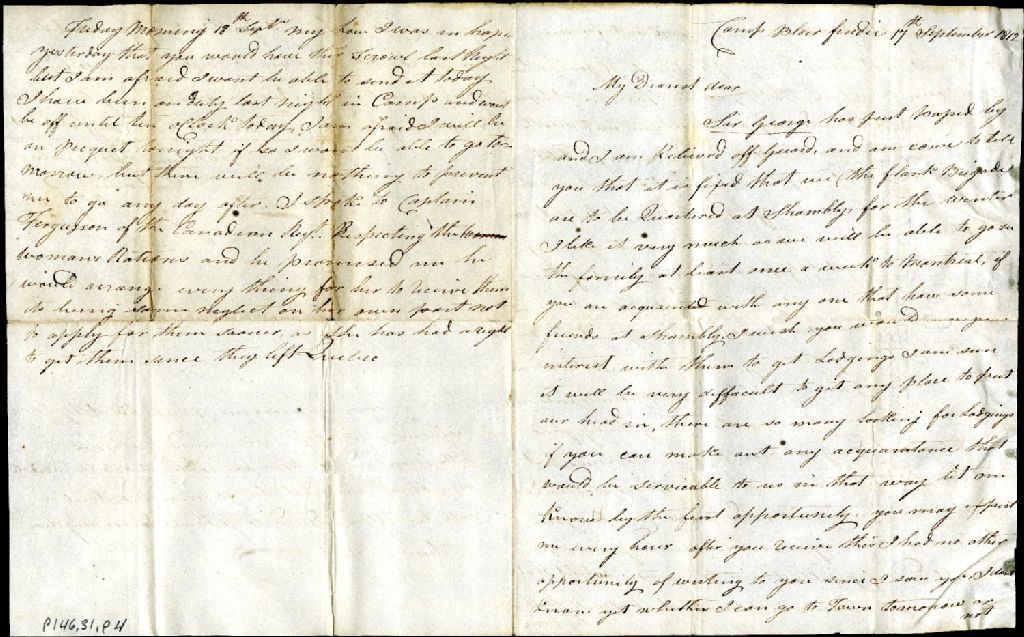 Camp Blair findie 17th September 1812
My Dearest dear
Sir George has just passed by
and I am Relieved off Guard, and am come to tell
you that it is fixed that we (the flank Brigade)
are to be Quartered at Shambly, for the winter
I like it very much as we will be able to go in
the family at least once a week to Montreal, if
you are acquainted with any one that have some
friends at Shambly, I wish you would
interest with them to get Lodgings I am sure
it will be very difficult to get any place to put
our head in, there are so many looking for Lodgings
if you can make out any acquaintance that
would be serviceable to us in that way let me
know by the first opportunity, you may expect
me every hour after you receive this I had no other
opportunity of writing to you since I saw you, I dont
know yet whether I can go to Town tomorrow or
not
Friday Morning 18th Septr my I was in hope
yesterday that you would have this Scrowl last Night
but I am afraid I wont be able to send it today
I have been on duty last night in Camp and wont
be off until ten oClock today, I am afraid I will be
on Picquet tonight if so I wont be able to go to-
morrow, but there will be nothing to prevent
me to go any day after. I spoke to Captain
Fergusson of the Canadian Regt. Respecting the
womans Rations and he promised me he
would arrange every thing for her to receive them
its being some neglect on her own part not
to apply for them sooner, as She has had a right
to get them since they left Quebec
P146,S1,P4